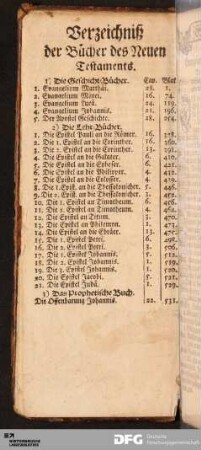 Verzeichniß
der Bücher des Neuen
Testaments.
1) Die Geschicht-Bücher. Cap. Blat.
1. Evangelium Matthäi. 28. 1.
2. Evangelium Marci. 16. 74.
3. Evangelium Lucä. 24. 119.
4. Evangelium Johannis. 21. 196.
5. Der Apostel Geschichte. 28. 254.
2) Die Lehr-Bücher.
1. Die Epistel Pauli an die Römer. 16. 328.
2. Die 1. Epistel an die Corinther. 16. 360.
3. Die 2. Epistel an die Corinther. 13.
4. Die Epistel an die Galater. 6.
5. Die Epistel an die Epheser. 6. 422.
6. Die Epistel an die Philipper. 4.
7. Die Epistel an die Colosser. 4.
8. Die 1. Epist. an die Thessalonicher. 5.
9. Die 2. Epist. an die Thessalonicher. 3.
10. Die 1. Epistel an Timotheum. 6.
11. Die 2. Epistel an Timotheum. 4. 464.
12. Die Epistel an Titum. 3. 470.
13. Die Epistel an Philemon. 1. 473.
14. Die Epistel an die Ebräer. 13. 475.
15. Die 1. Epistel Petri. 6. 498.
16. Die 2. Epistel Petri. 3. 506.
17. Die 1. Epistel Johannis. 5. 512.
18. Die 2. Epistel Johannis. 1. 519.
19. Die 3. Epistel Johannis. 1. 520.
20. Die Epistel Jacobi. 5. 521.
21. Die Epistel Judä. 1. 529.
3) Das Prophetische Buch.
Die Offenbarung Johannis. 22. 531.
DFG Deutsche Forschungsgemeinschaft